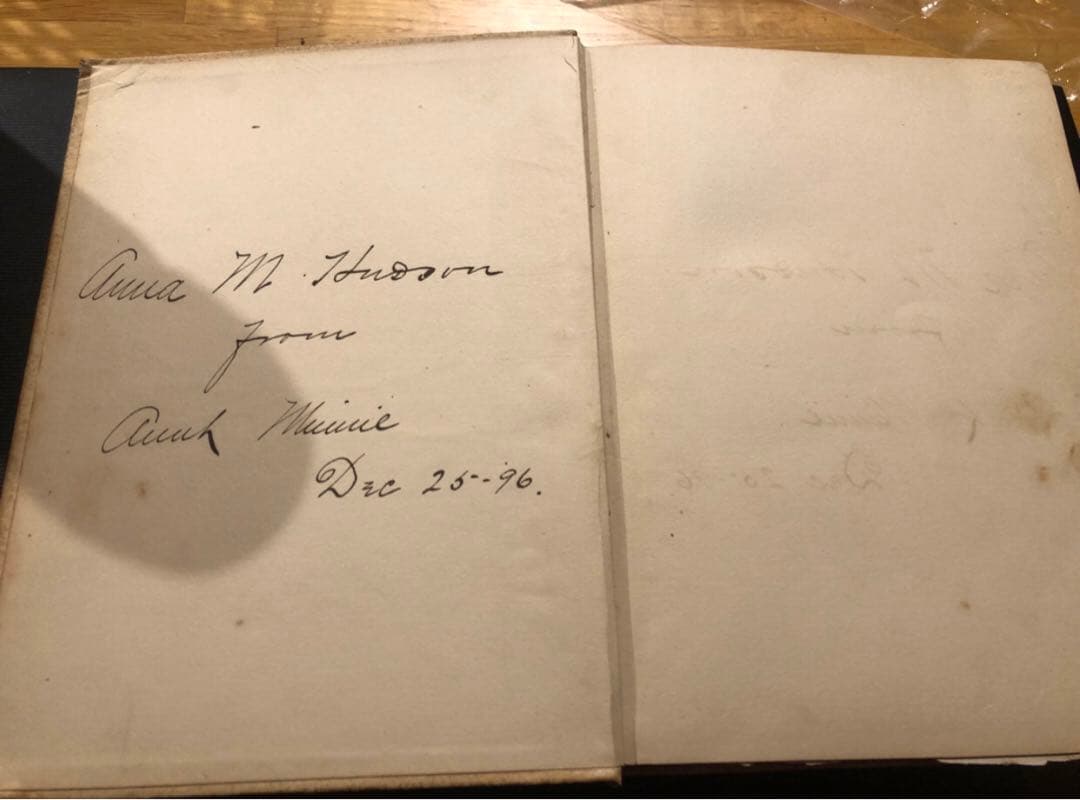 Anna M. Hudson
from
Aunt Minnie
Dec 25-96.